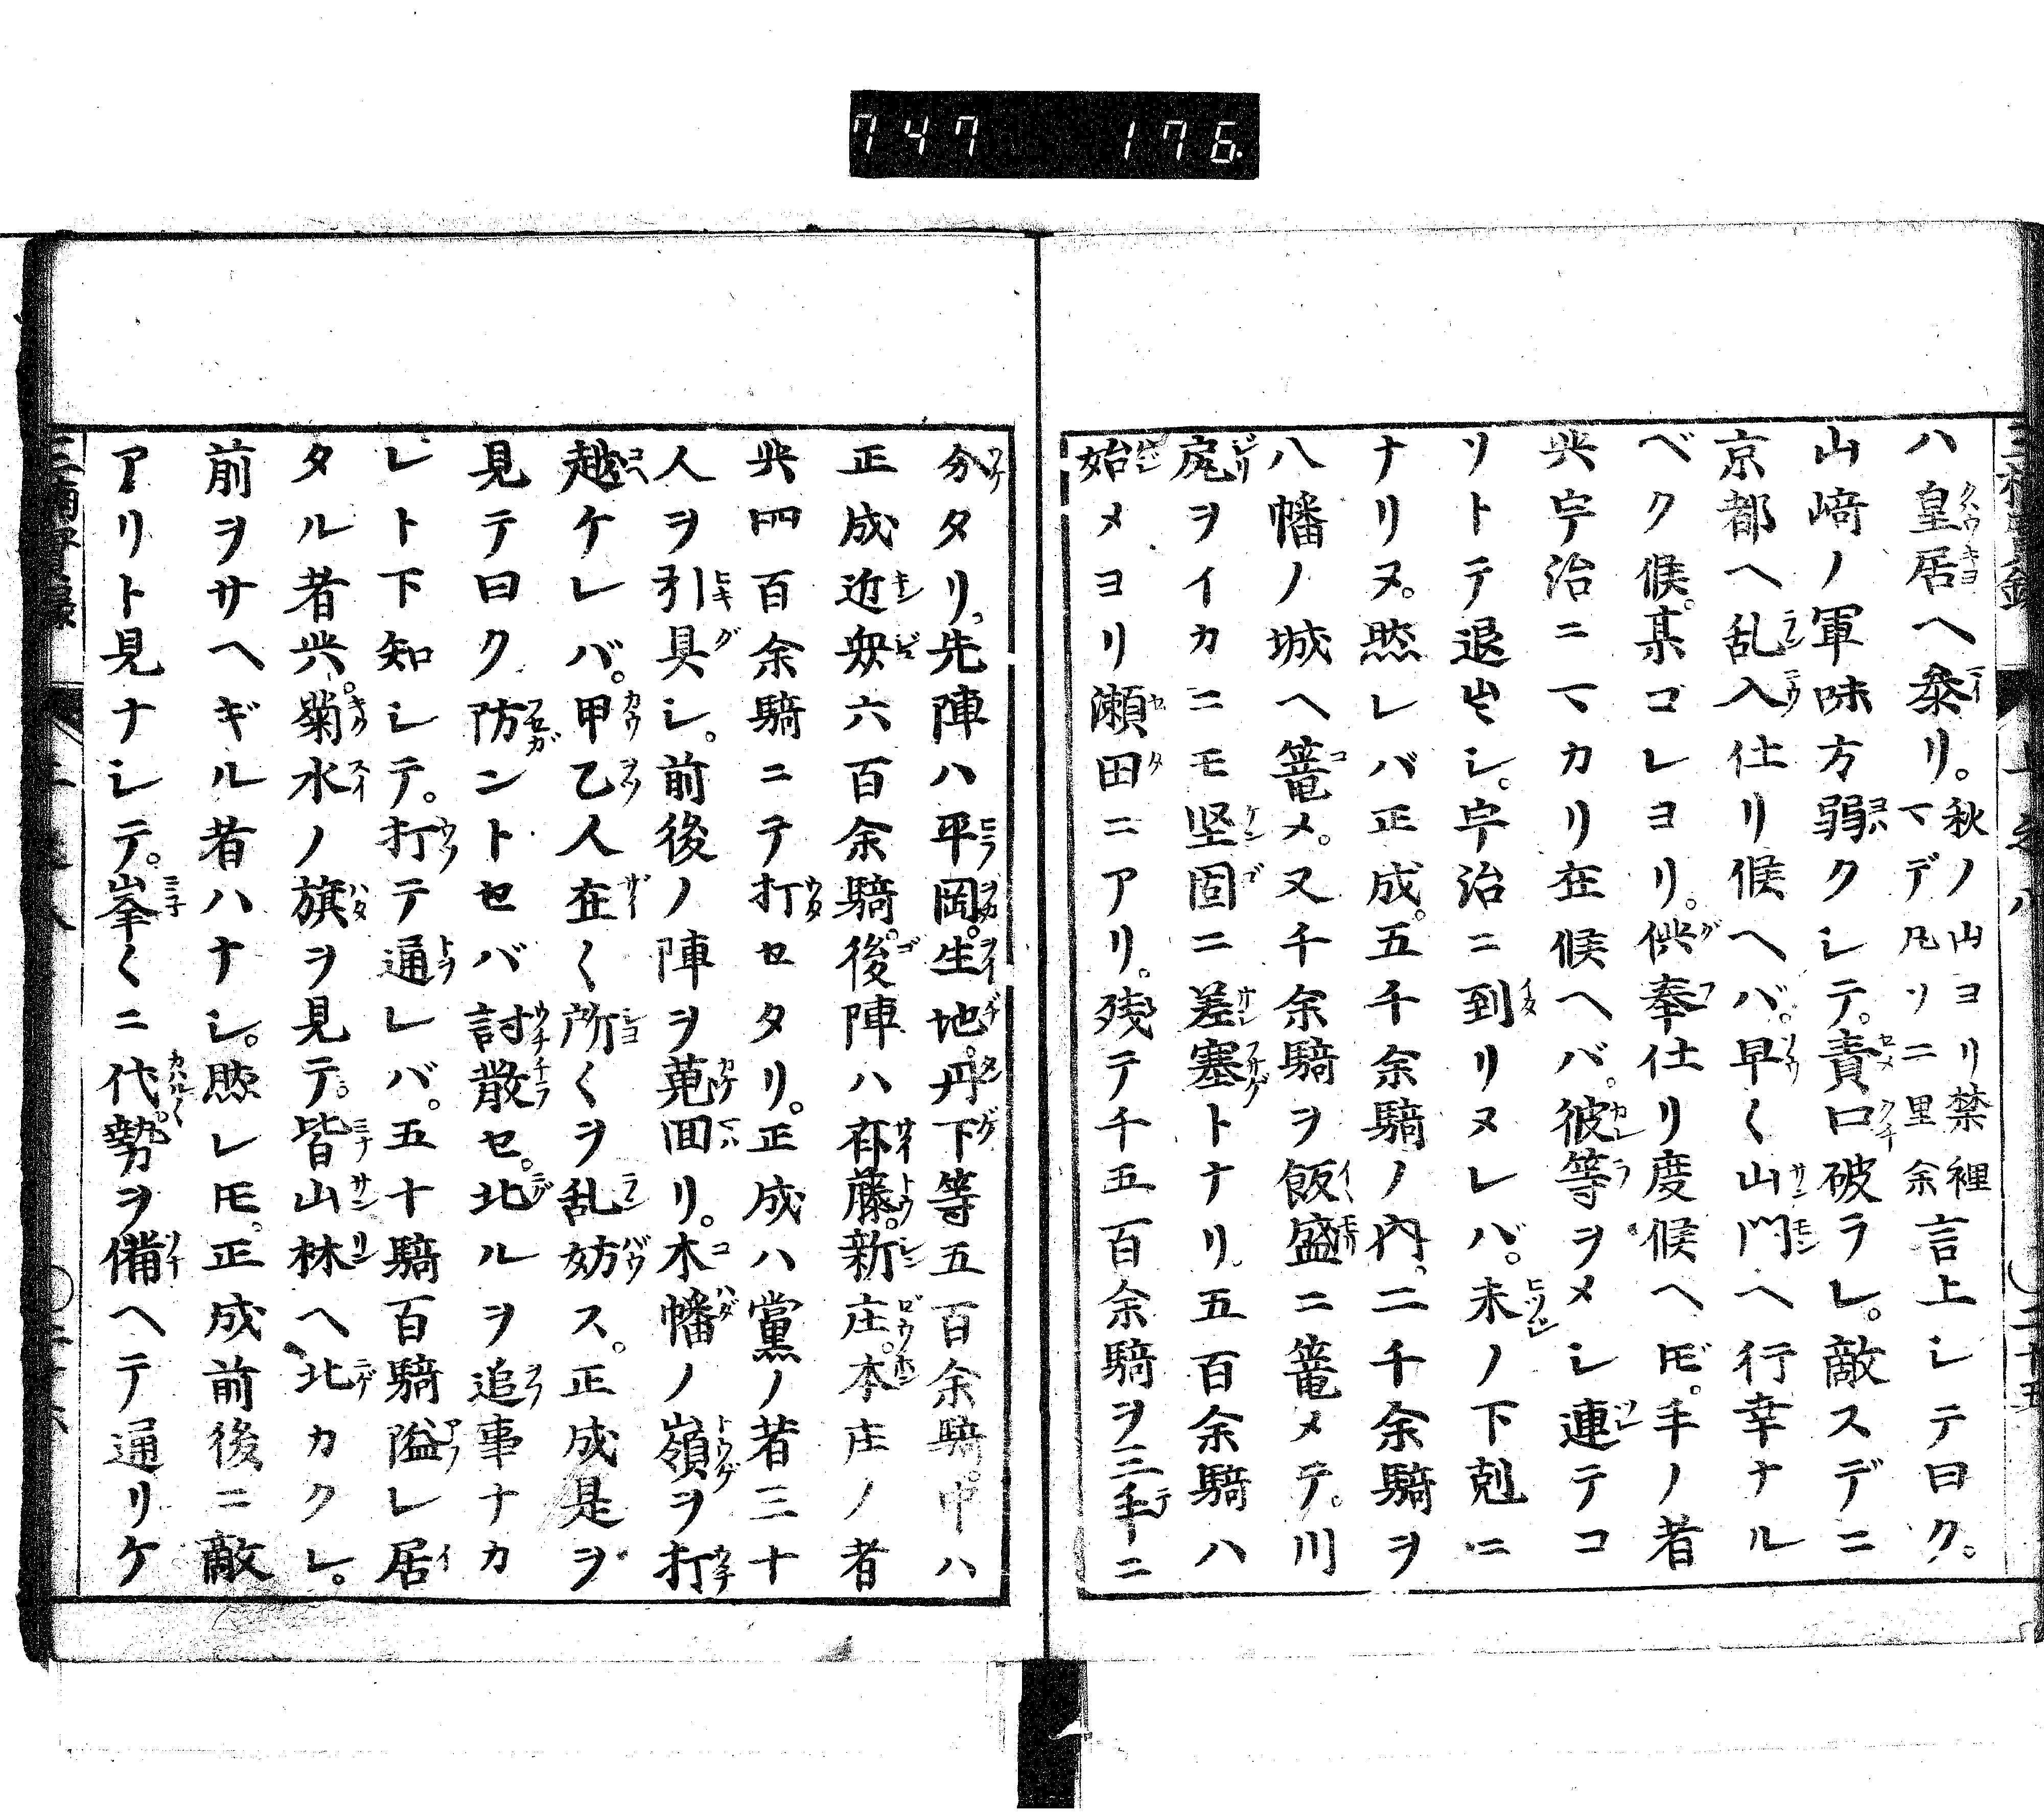 747 176.
ハ皇居ヘ參リ。秋ノ山ヨリ禁裡マデ凡ソ二里余言上シテ曰ク。
山﨑ノ軍味方弱クシテ。責口破ラレ。敵スデニ
京都ヘ乱入仕リ候ヘバ。早〱山門ヘ行幸ナル
ベク候。某ゴレヨリ。供奉仕リ度候ヘ𪜈。手ノ者
共宇治ニマカリ在候ヘバ。彼等ヲメシ連テコ
リトテ退出シ。宇治ニ到リヌレバ。未ノ下剋ニ
ナリヌ。然レバ正成。五千余騎ノ内。二千余騎ヲ
八幡ノ城ヘ篭メ。又千余騎ヲ飯盛ニ篭メテ。川
尻ヲイカニモ堅固ニ差塞トナリ。五百余騎ハ
始メヨリ瀬田ニアリ。残テ千五百余騎ヲ三手ニ
分タリ。先陣ハ平岡。生地。丹下等五百余騎。中ハ
正成近衆六百余騎。後陣ハ斎藤。新庄。本庄ノ者
共四百余騎ニテ打セタリ。正成ハ黨ノ者三十
人ヲ引具シ。前後ノ陣ヲ蒐回リ。木幡ノ嶺ヲ打
越ケレバ。甲乙人在〱所〱ヲ乱妨ス。正成是ヲ
見テ曰ク防ントセバ討散セ。北ルヲ追事ナカ
レト下知シテ。打テ通レバ。五十騎百騎隘レ居
タル者共。菊水ノ旗ヲ見テ。皆山林ヘ北カクレ。
前ヲサヘギル者ハナシ。然レ𪜈。正成前後ニ敵
アリト見ナシテ。峯〱ニ代。勢ヲ備ヘテ通リケ